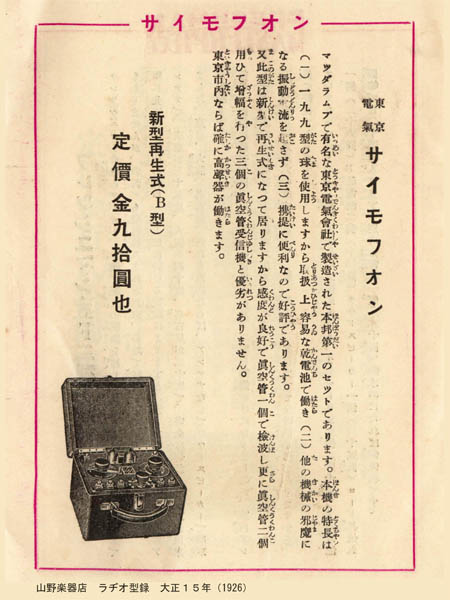 サイモフオン
東京電氣 サイモフオン
マツダランプで有名な東京電氣會社で製造された本邦第一のセットであります。本機の特長は
(一)一九九型の球を使用しますから取扱上容易な乾電池で働き(二)他の機械の邪魔に
なる振動電流を起さず(三)携提に便利なので好評であります。
又此型は新型で再生式になつて居りますから感度が良好で眞空管一個で檢波し更に眞空管二個
用ひて增幅を行つた三個の眞空管受信機と優劣がありません。
東京市內ならば確に高聲器が働きます。
新型再生式(B型)
定價 金九拾圓也
山野楽器店 ラヂオ型録 大正15年(1926)